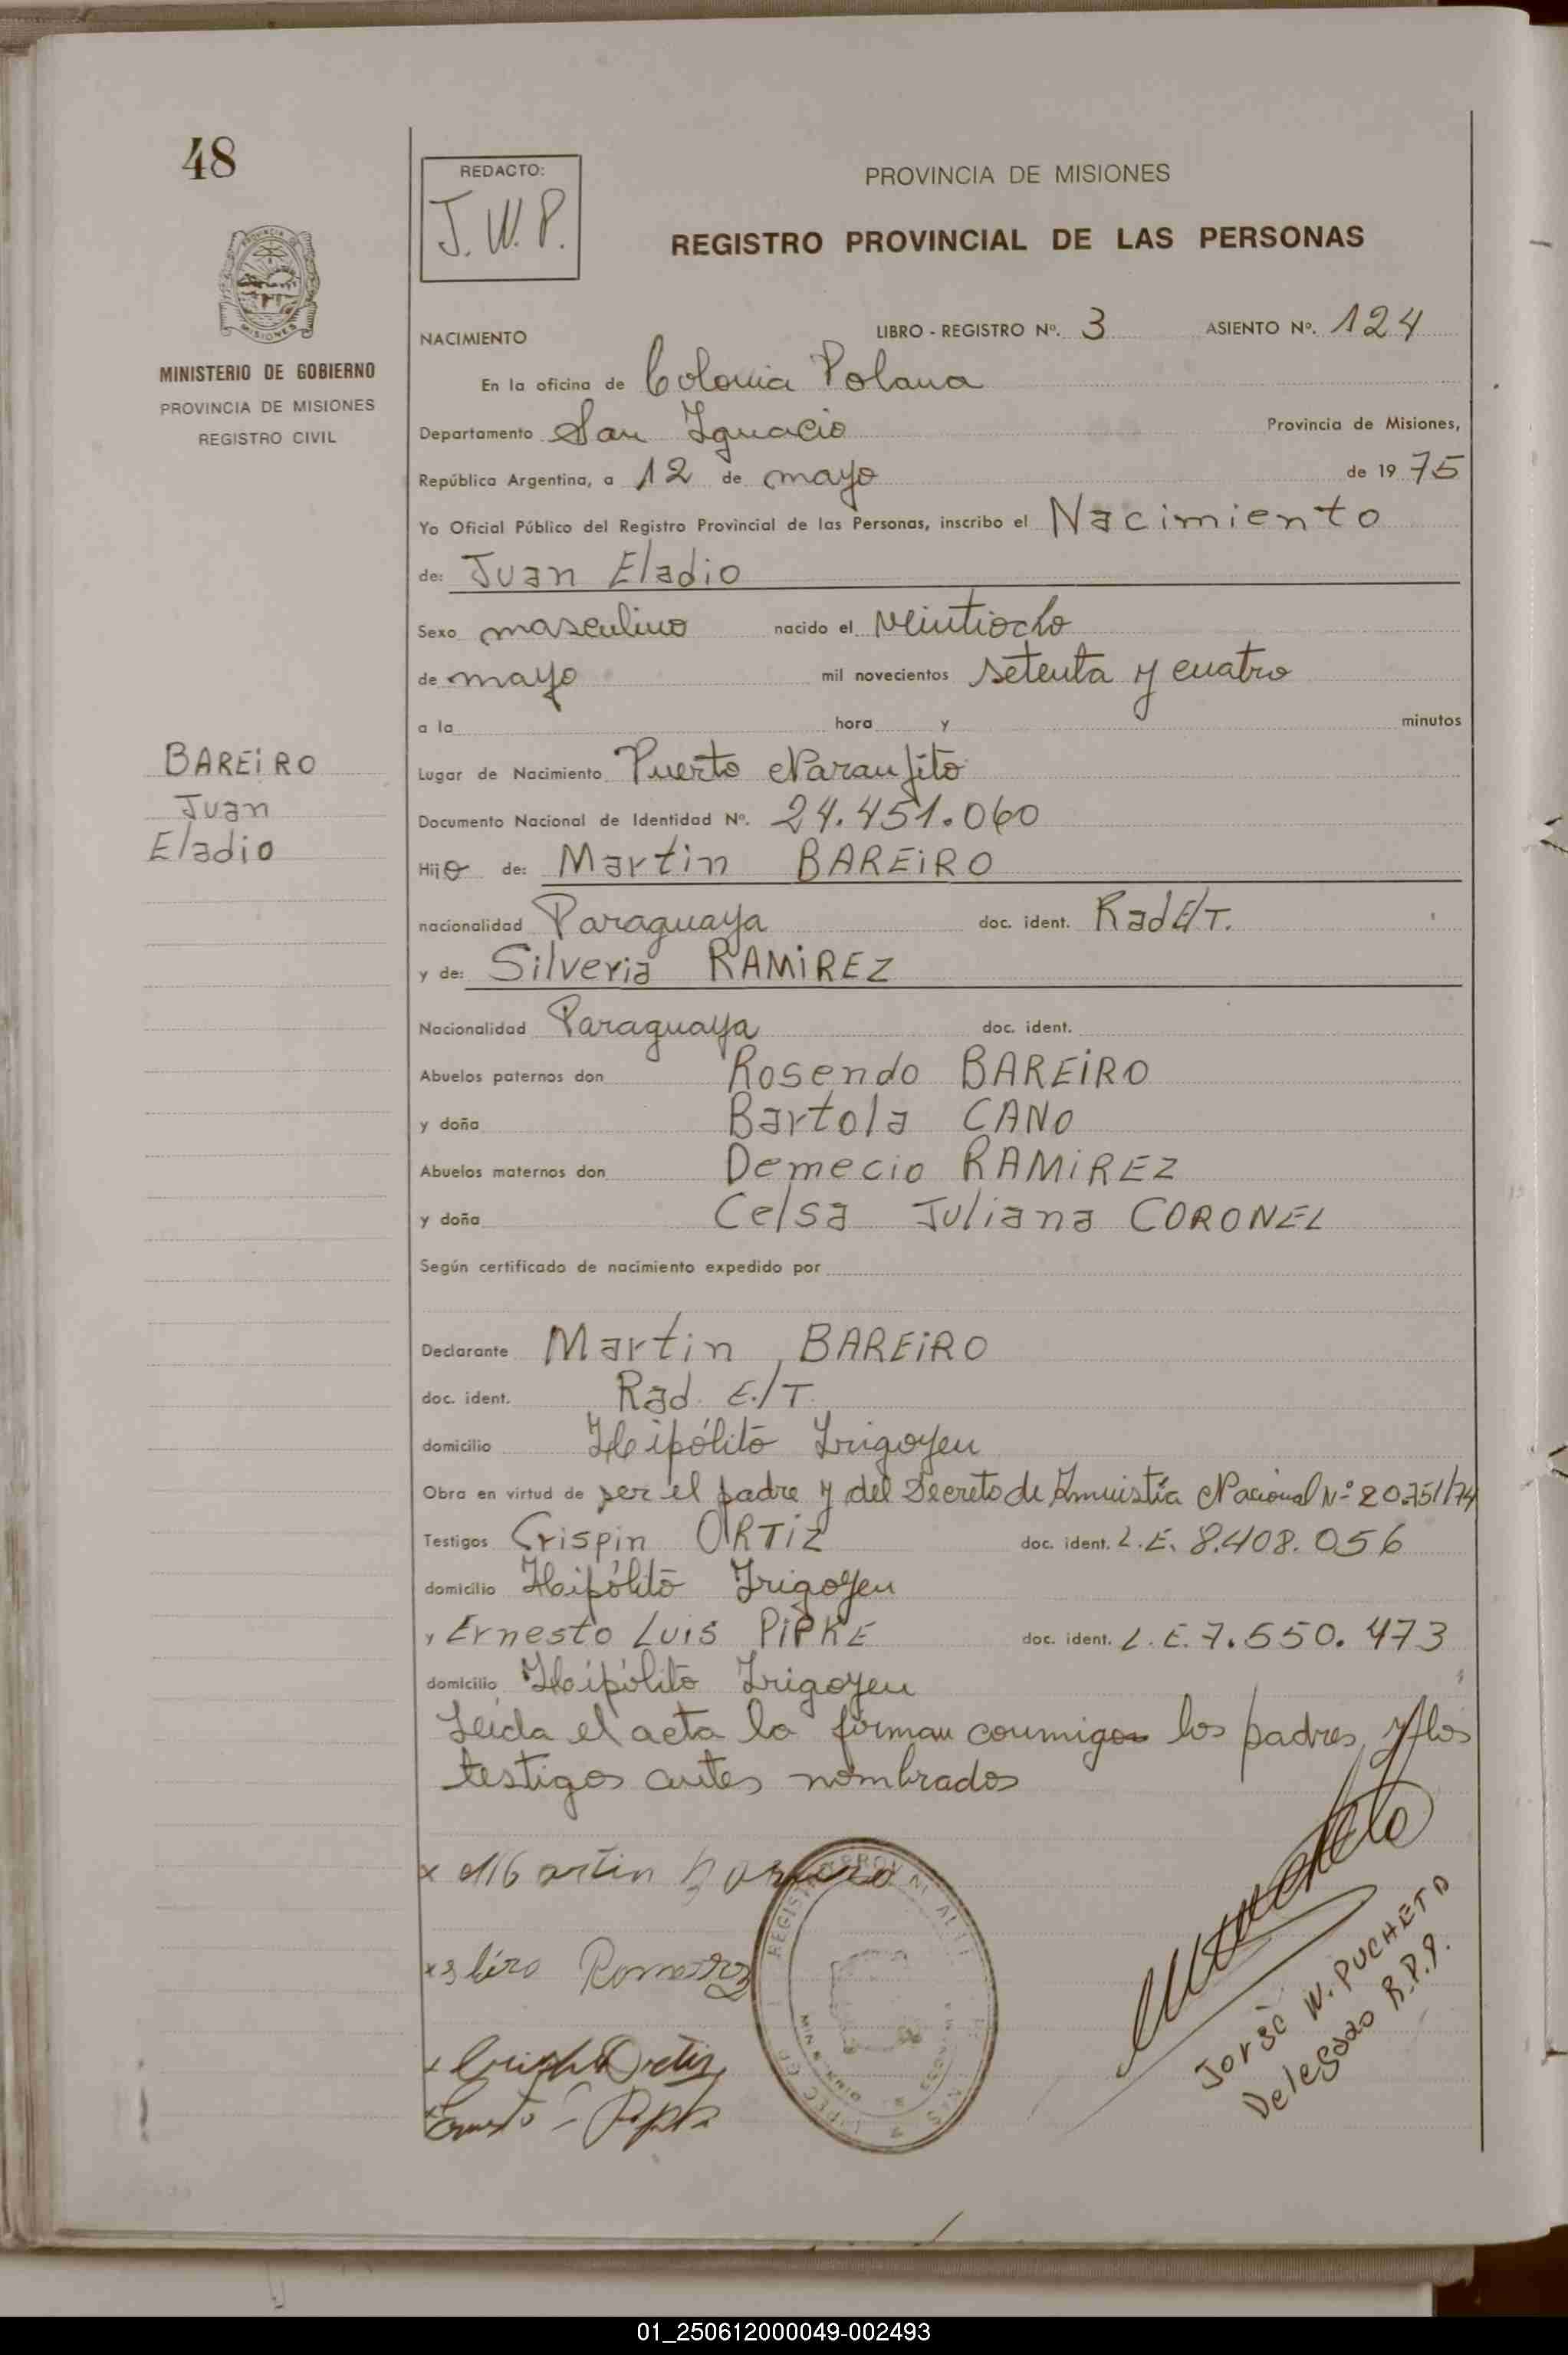 48
REDACTO:
J.W.P.
PROVINCIA DE MISIONES
REGISTRO PROVINCIAL DE LAS PERSONAS
MISIONES
MINISTERIO DE GOBIERNO
PROVINCIA DE MISIONES
REGISTRO CIVIL
NACIMIENTO LIBRO - REGISTRO Nº. 3 ASIENTO Nº. 124
En la oficina de Colonia Polana
Departamento San Ignacio Provincia de Misiones,
República Argentina, a 12 de mayo de 1975
Yo Oficial Público del Registro Provincial de las Personas, inscribo el Nacimiento
de: Juan Eladio
Sexo masculino nacido el veintiocho
de mayo mil novecientos setenta y cuatro
a la hora y minutos
BAREIRO
Juan
Eladio
Lugar de Nacimiento Puerto Naranjito
Documento Nacional de Identidad Nº. 24.451.060
Hijo de: Martin BAREIRO
nacionalidad Paraguaya doc. ident. Rad E/T.
y de: Silveria RAMIREZ
Nacionalidad Paraguaya doc. ident.
Abuelos paternos don Rosendo BAREIRO
y doña Bartola CANO
Abuelos maternos don Demecio RAMIREZ
y doña Celsa Juliana CORONEL
Según certificado de nacimiento expedido por
Declarante Martin BAREIRO
doc. ident. Rad. E./T.
domicilio Hipólito Irigoyen
Obra en virtud de ser el padre y del Decreto de Amnistía Nacional Nº 20.751/74
Testigos Crispin ORTIZ doc. ident. L.E. 8.408.056
domicilio Hipólito Irigoyen
y Ernesto Luis PIPKE doc. ident. L.E. 7.550.473
domicilio Hipólito Irigoyen
Leida el acta la firman conmigo los padres y los
testigos antes nombrados
x Martin Bareiro
Jorge W. PUCHETA
Delegado R.P.P.
01_250612000049-002493